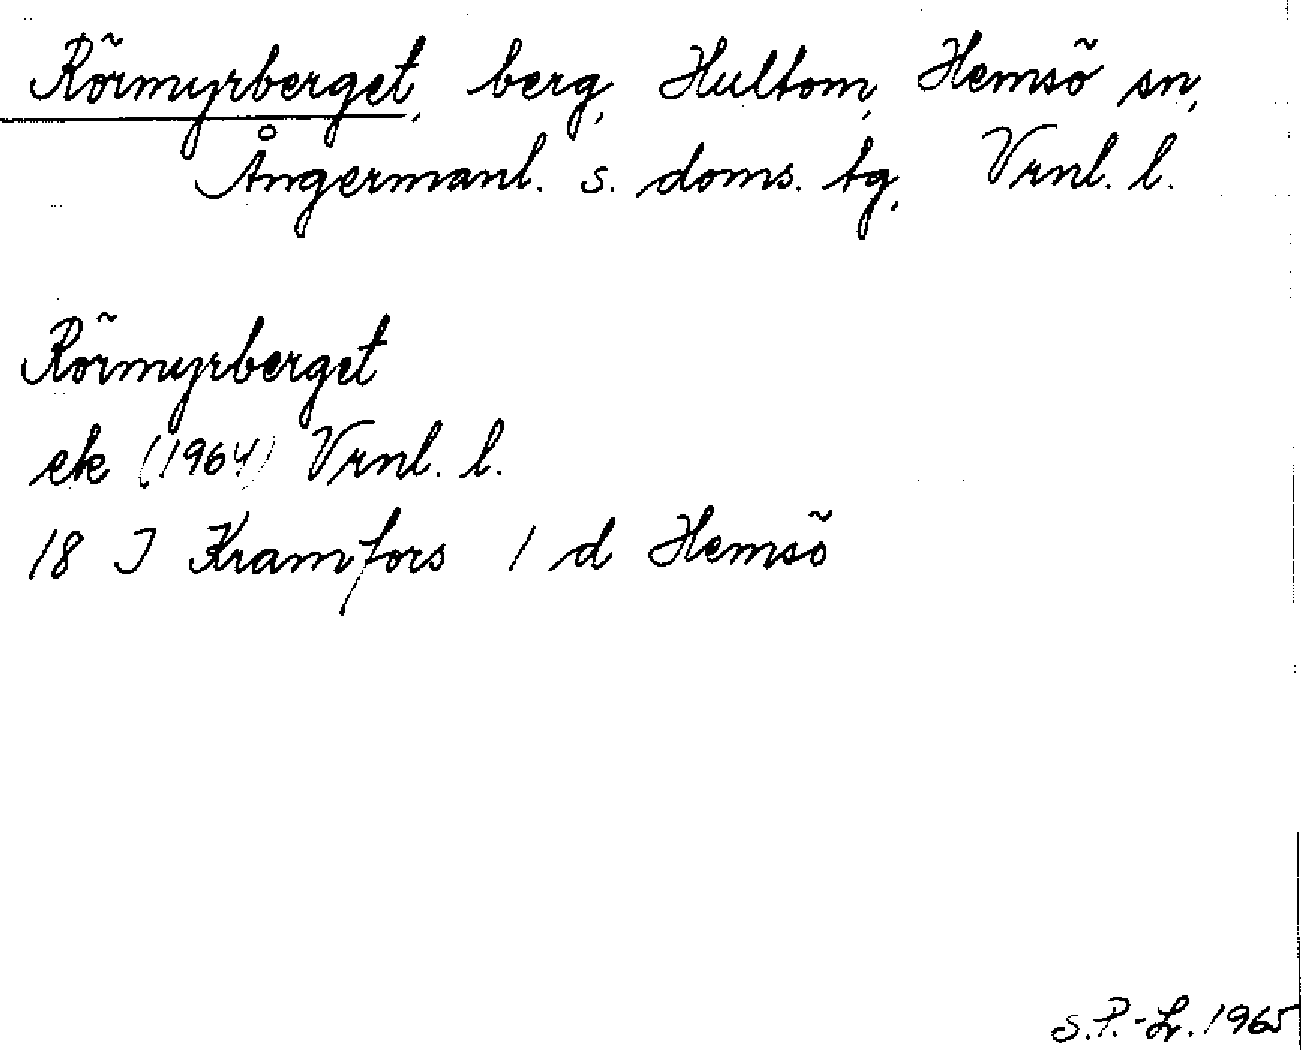 Rörmyrberget, berg, Hultom, Hemsö sn,
Ångermanl. s. doms. tg, Vrnl. l.
Rörmyrberget
ek (1964) Vrnl. l.
18 I Kramfors 1 d Hemsö
S.P.-Lr. 1965